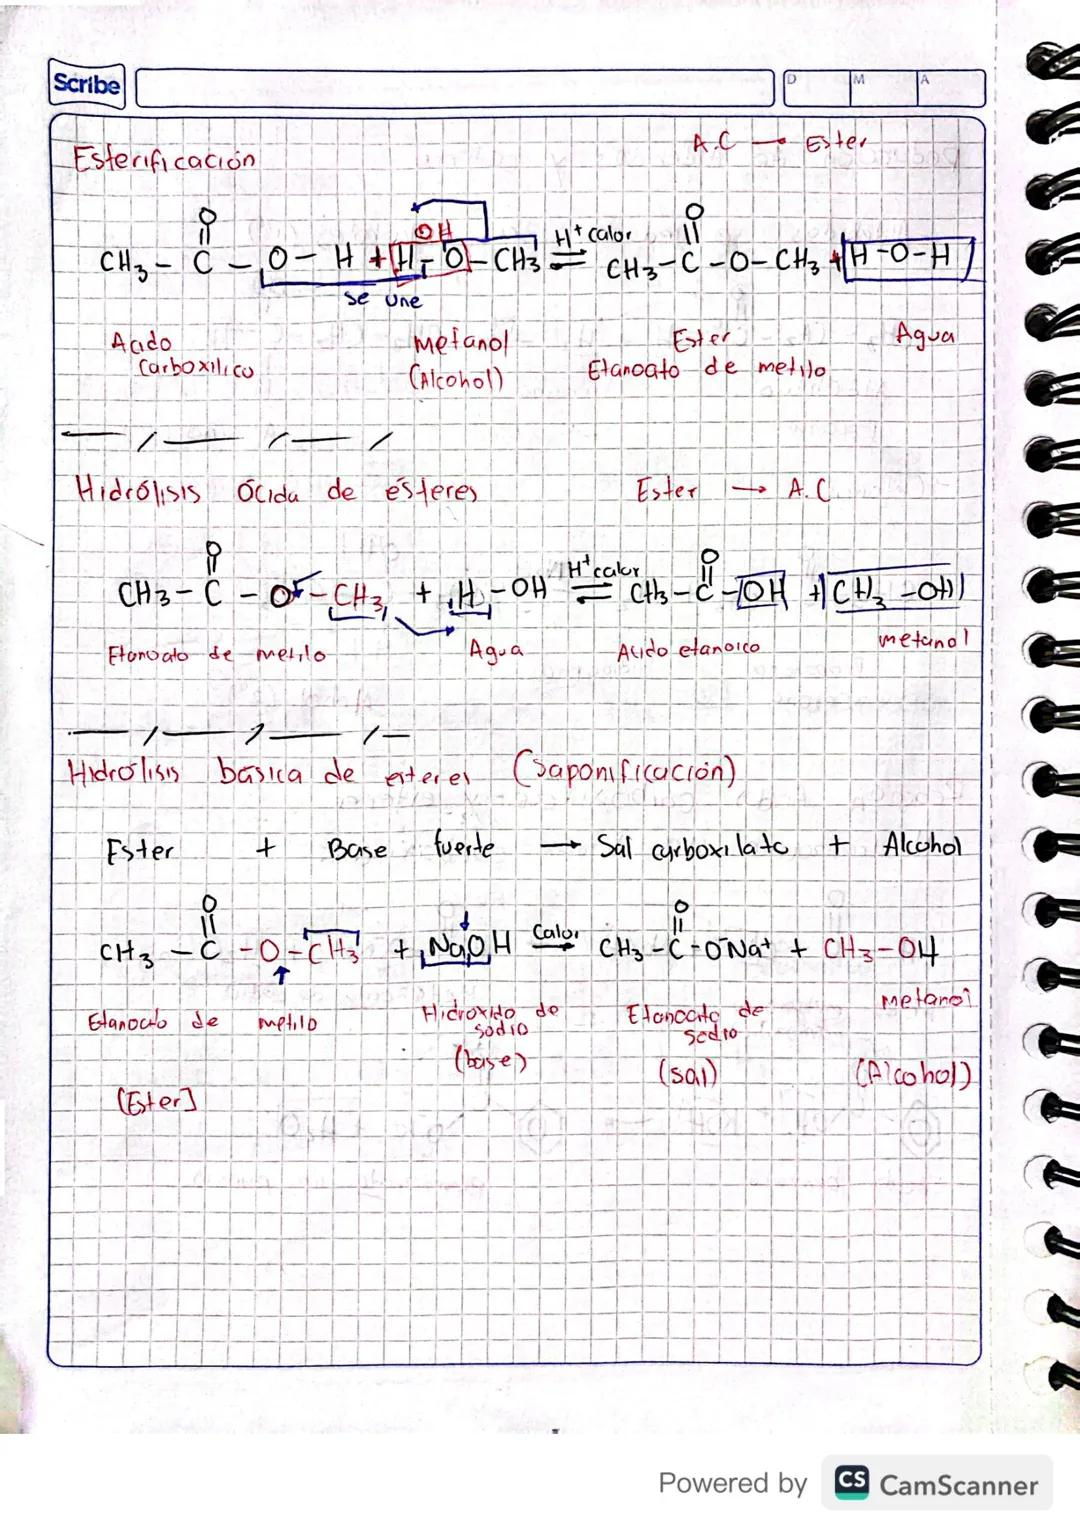 Scribe
D M A
Esterificación A.C → Ester
O OH O
CH3 - C - O - H + H - O - CH3 ⇌ H+ calor CH3 - C - O - CH3 + H - O - H
se une
Acido Metanol Ester Agua
Carboxilico (Alcohol) Etanoato de metilo
Hidrólisis ácida de ésteres Ester → A.C.
O O
CH3 - C - O - CH3 + H - OH ⇌ H+ calor CH3 - C - OH + CH3 - OH
Etanoato de metilo Agua Acido etanoico metanol
Hidrólisis básica de esteres (Saponificación)
Ester + Base fuerte → Sal carboxilato + Alcohol
O O
CH3 - C - O - CH3 + NaOH Calor → CH3 - C - O-Na+ + CH3 - OH
Etanoato de metilo Hidroxido de sodio Etanoato de sodio metanol
(base) (sal) (Alcohol)
(Ester]
Powered by CS CamScanner